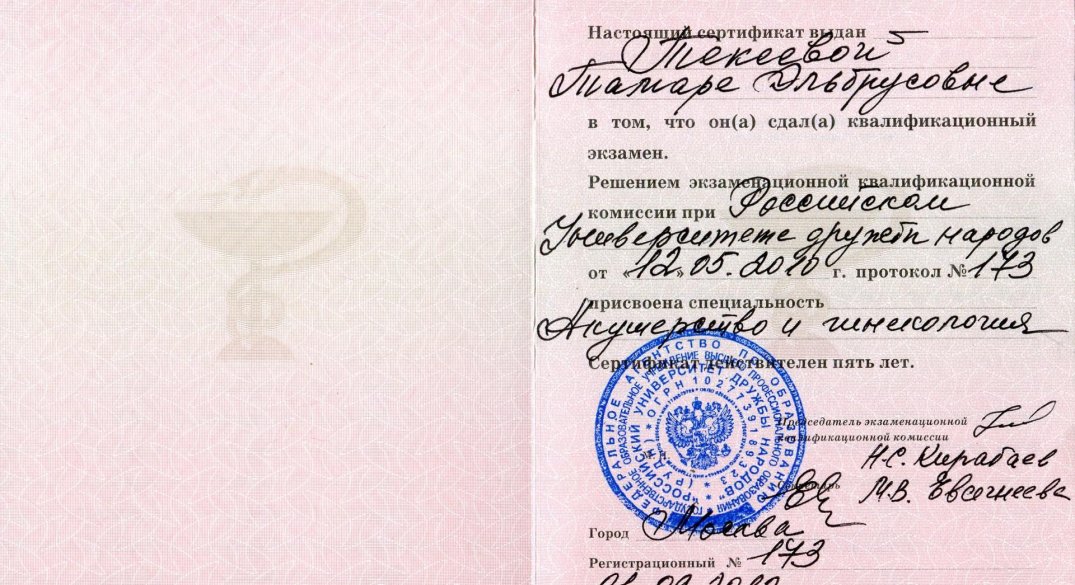 Настоящий сертификат выдан
Текеевой
Тамаре Эльбрусовне
в том, что он(а) сдал(а) квалификационный
экзамен.
Решением экзаменационной квалификационной
комиссии при Российском
Университете дружбы народов
от «12» 05.2010 г. протокол № 173
присвоена специальность
Акушерство и гинекология
Сертификат действителен пять лет.
ФЕДЕРАЛЬНОЕ АГЕНТСТВО ПО ОБРАЗОВАНИЮ
ГОСУДАРСТВЕННОЕ ОБРАЗОВАТЕЛЬНОЕ УЧРЕЖДЕНИЕ ВЫСШЕГО ПРОФЕССИОНАЛЬНОГО ОБРАЗОВАНИЯ
"РОССИЙСКИЙ УНИВЕРСИТЕТ ДРУЖБЫ НАРОДОВ"
(РУДН) * ОГРН 1027739189323 *
Председатель экзаменационной
квалификационной комиссии
Н.С. Кирабаев
М.В. Евсегнеева
Город Москва
Регистрационный № 173